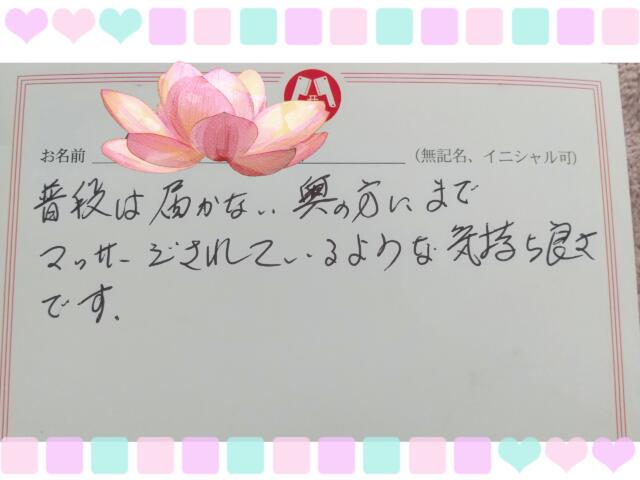 お名前
（無記名、イニシャル可）
普段は届かない奥の方にまで
マッサージされているような気持ち良さ
です。